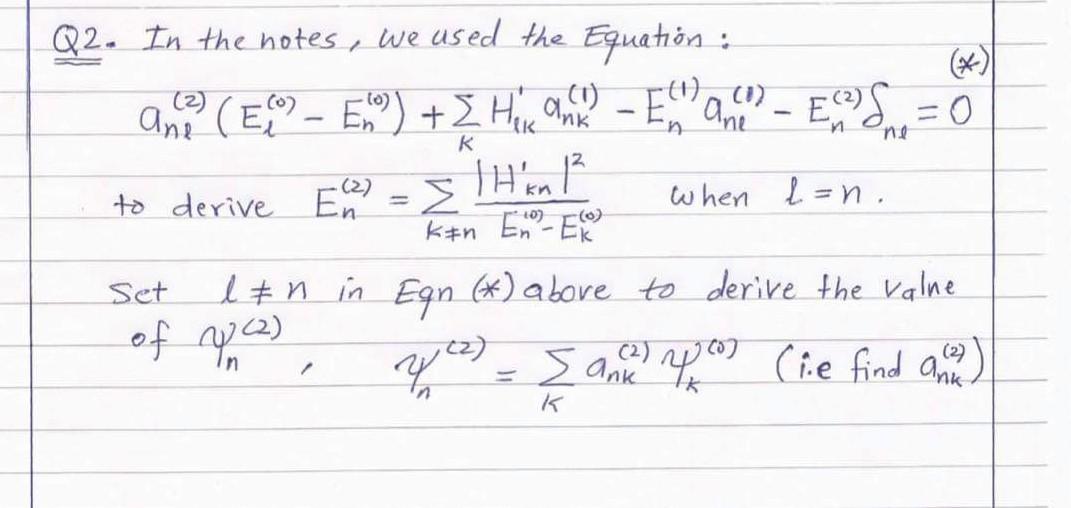 Q2. In the notes, we used the Equation :
(*)
aₙₗ⁽²⁾ (Eₗ⁽⁰⁾ - Eₙ⁽⁰⁾) + Σₖ H'ₗₖ aₙₖ⁽¹⁾ - Eₙ⁽¹⁾ aₙₗ⁽¹⁾ - Eₙ⁽²⁾ δₙₗ = 0
to derive Eₙ⁽²⁾ = Σ_{k≠n} |H'ₖₙ|² / (Eₙ⁽⁰⁾ - Eₖ⁽⁰⁾) when l = n.
Set l ≠ n in Eqn (*) above to derive the value
of ψₙ⁽²⁾, ψₙ⁽²⁾ = Σₖ aₙₖ⁽²⁾ ψₖ⁽⁰⁾ (i.e find aₙₖ⁽²⁾)